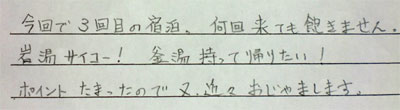 今回で3回目の宿泊、何回来ても飽きません。
岩湯サイコー! 釜湯持って帰りたい!
ポイントたまったので又、近々おじゃまします。